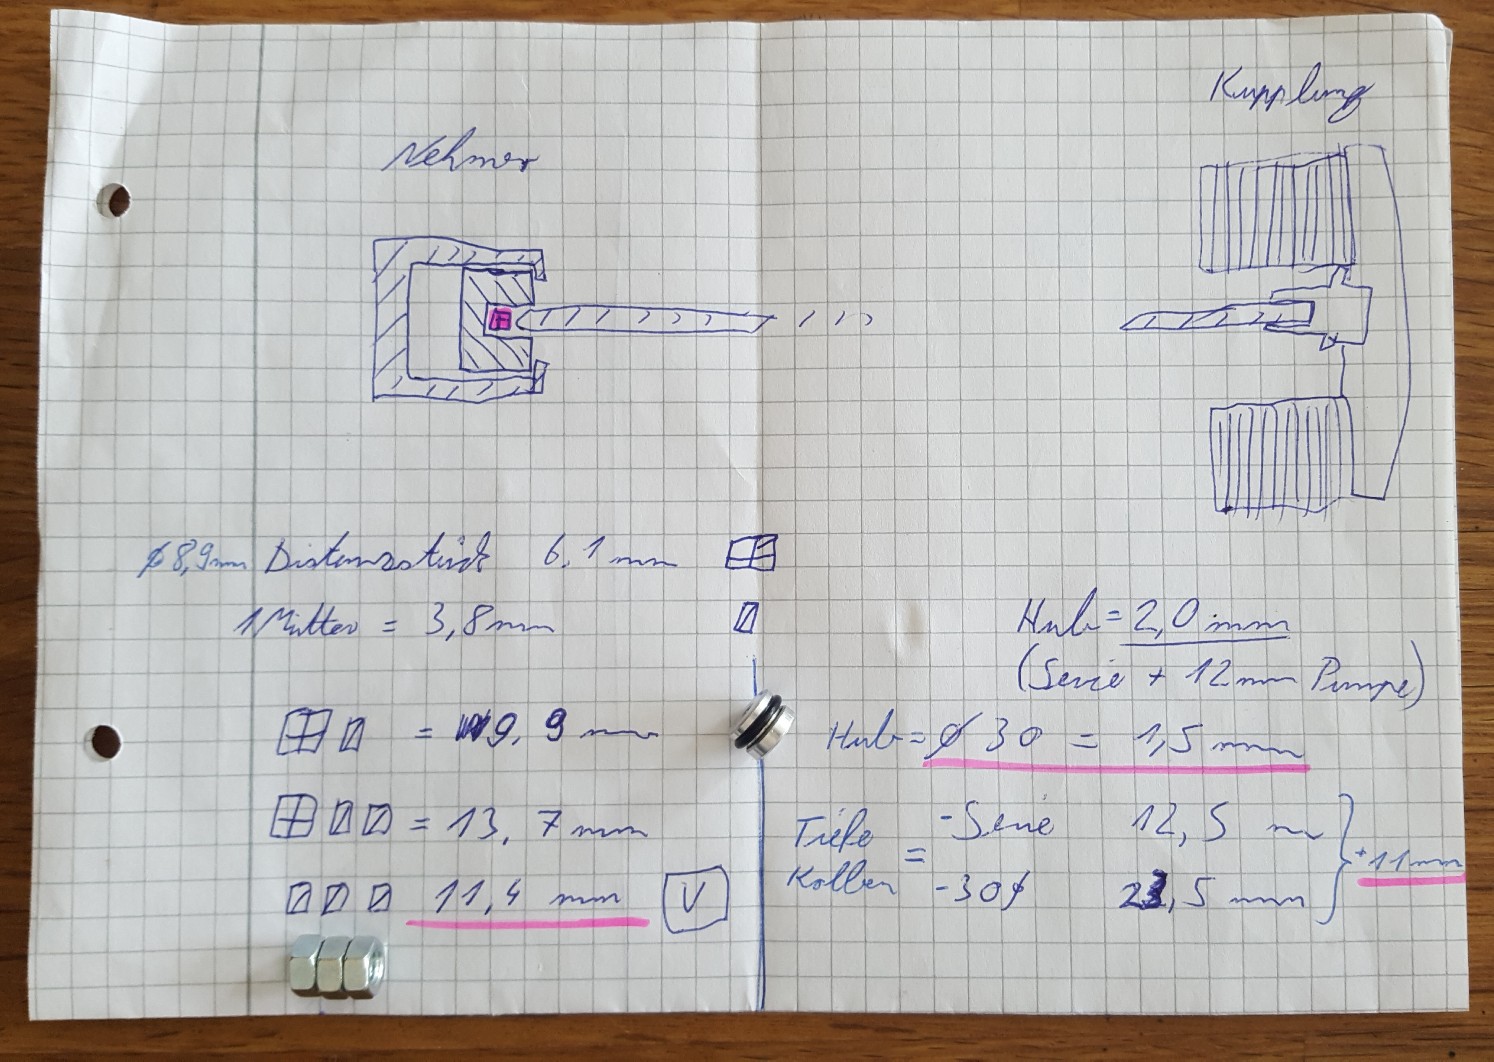 Kupplung
Nehmer
⌀8,9mm Distanzstück 6,1 mm
1 Mutter = 3,8mm
= 9,9 mm
= 13,7 mm
11,4 mm V
Hub = 2,0 mm
(Serie + 12mm Pumpe)
Hub = ⌀ 30 = 1,5 mm
Tiefe Kolben =
- Serie 12,5 m
- 30⌀ 23,5 mm
+ 11 mm